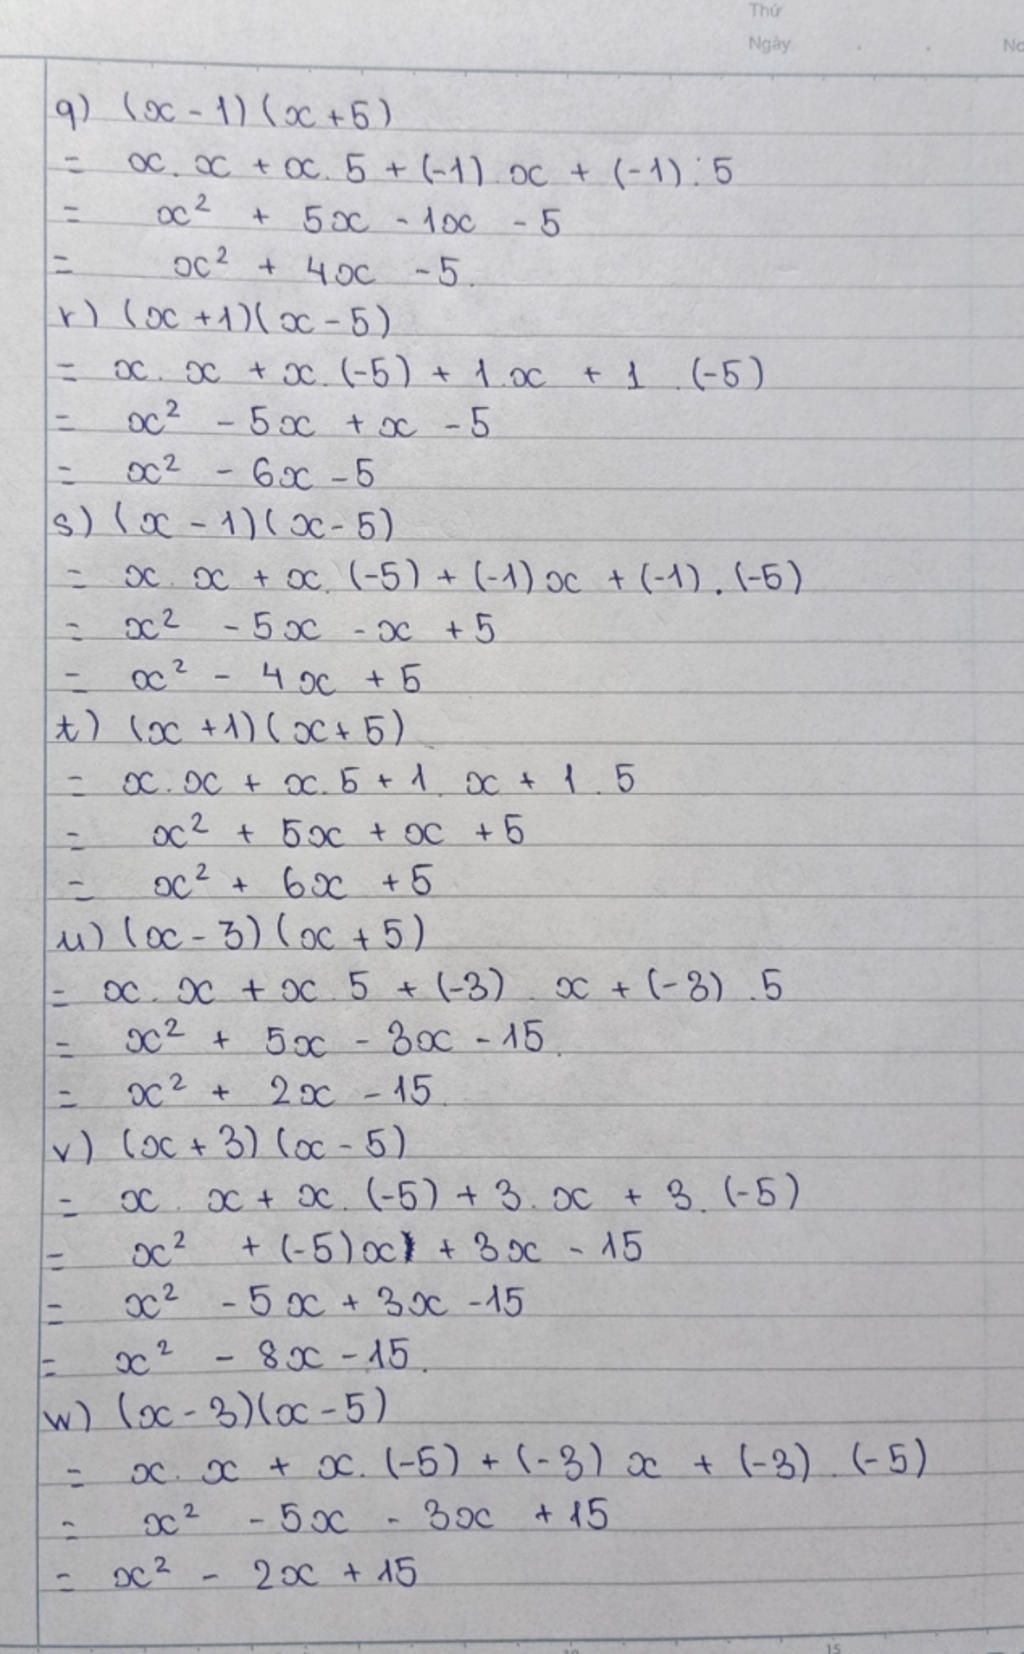 Thứ
Ngày . . No
q) (x - 1) (x + 5)
= x . x + x . 5 + (-1) . x + (-1) . 5
= x² + 5x - 1x - 5
= x² + 4x - 5.
r) (x + 1)(x - 5)
= x . x + x . (-5) + 1 . x + 1 . (-5)
= x² - 5x + x - 5
= x² - 6x - 5
s) (x - 1)(x - 5)
= x . x + x . (-5) + (-1) x + (-1) . (-5)
= x² - 5x - x + 5
= x² - 4x + 5
t) (x + 1)(x + 5)
= x . x + x . 5 + 1 . x + 1 . 5
= x² + 5x + x + 5
= x² + 6x + 5
u) (x - 3) (x + 5)
= x . x + x . 5 + (-3) . x + (-3) . 5
= x² + 5x - 3x - 15.
= x² + 2x - 15
v) (x + 3) (x - 5)
= x . x + x . (-5) + 3 . x + 3 . (-5)
= x² + (-5)x + 3x - 15
= x² - 5x + 3x - 15
= x² - 8x - 15.
w) (x - 3)(x - 5)
= x . x + x . (-5) + (-3) x + (-3) . (-5)
= x² - 5x - 3x + 15
= x² - 2x + 15
15